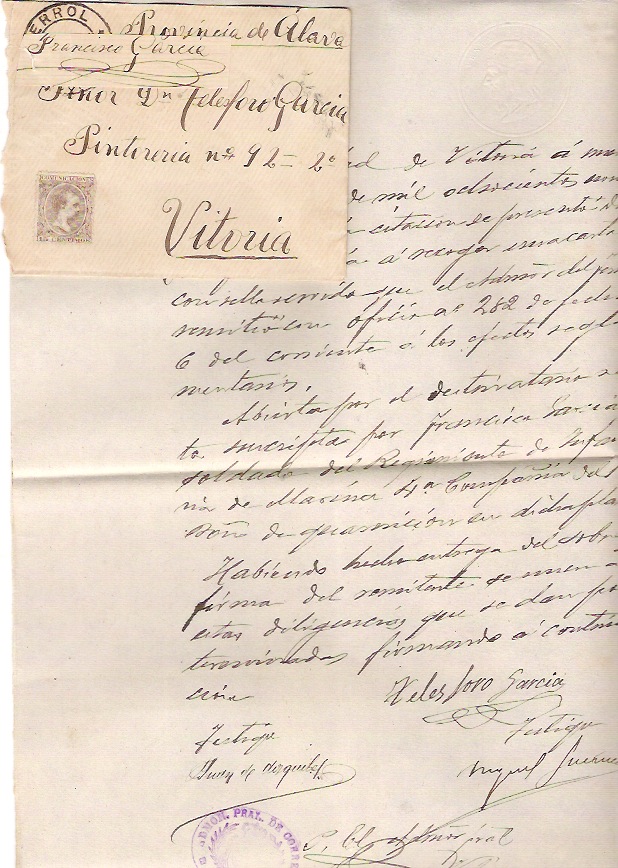 FERROL
Provincia de Álava
Francisco García
Señor Dn Telesforo Garcia
Pintoreria nº 92= 2º
Vitoria
COMUNICACIONES
15 CENTIMOS
de Vitoria á
de mil ochocientos
citacion se presentó
á recoger esta carta
con sello servido que el Admor del
remitió con oficio nº 282 de fecha
6 del corriente á los efectos regla
mentarios.
Abierta por el destinatario
ta suscripta por Francisco Garcia
soldado del Regimiento de Infan
ria de Marina 4ª Compañia del
Bon de guarnicion en dicha pla
Habiendo hecho entrega del sobre
firma del remitente se unen á
estas diligencias que se dan por
terminadas firmando á continua
ción
Telesforo Garcia
Testigo
Testigo
Juan de
Miguel
ADMON. PRAL. DE CORRE
P. El Admor pral